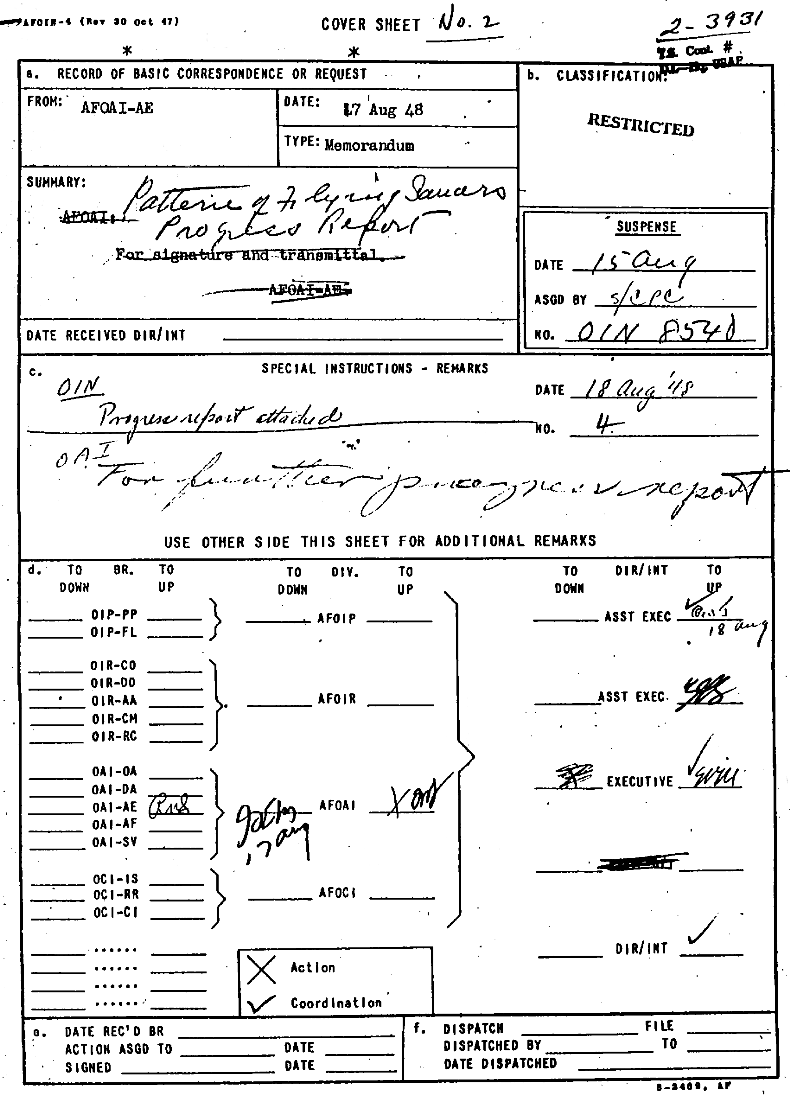 AFOIN-4 (Rev 30 Oct 47)
COVER SHEET No. 2
2-3931
T.S. Cont. #
* *
a. RECORD OF BASIC CORRESPONDENCE OR REQUEST
b. CLASSIFICATION:
FROM: AFOAI-AE
DATE: 17 Aug 48
TYPE: Memorandum
RESTRICTED
SUMMARY:
Patterns of Flying Saucers
AFOAI:
Progress Report
For signature and transmittal.
AFOAI-AE
DATE RECEIVED DIR/INT
SUSPENSE
DATE 15 Aug
ASGD BY s/CPC
NO. OIN 8540
c. SPECIAL INSTRUCTIONS - REMARKS
OIN
DATE 18 Aug '48
Progress report attached
NO. 4
OAI
For further progress report
USE OTHER SIDE THIS SHEET FOR ADDITIONAL REMARKS
d. TO DOWN BR. TO UP
TO DOWN DIV. TO UP
TO DOWN DIR/INT TO UP
OIP-PP
OIP-FL
AFOIP
ASST EXEC
18 aug
OIR-CO
OIR-DO
OIR-AA
OIR-CM
OIR-RC
AFOIR
ASST EXEC.
OAI-OA
OAI-DA
OAI-AE
OAI-AF
OAI-SV
17 aug
AFOAI X
EXECUTIVE ✓
OCI-IS
OCI-RR
OCI-CI
AFOCI
DIR/INT ✓
X Action
✓ Coordination
e. DATE REC'D BR
ACTION ASGD TO DATE
SIGNED DATE
f. DISPATCH FILE
DISPATCHED BY TO
DATE DISPATCHED